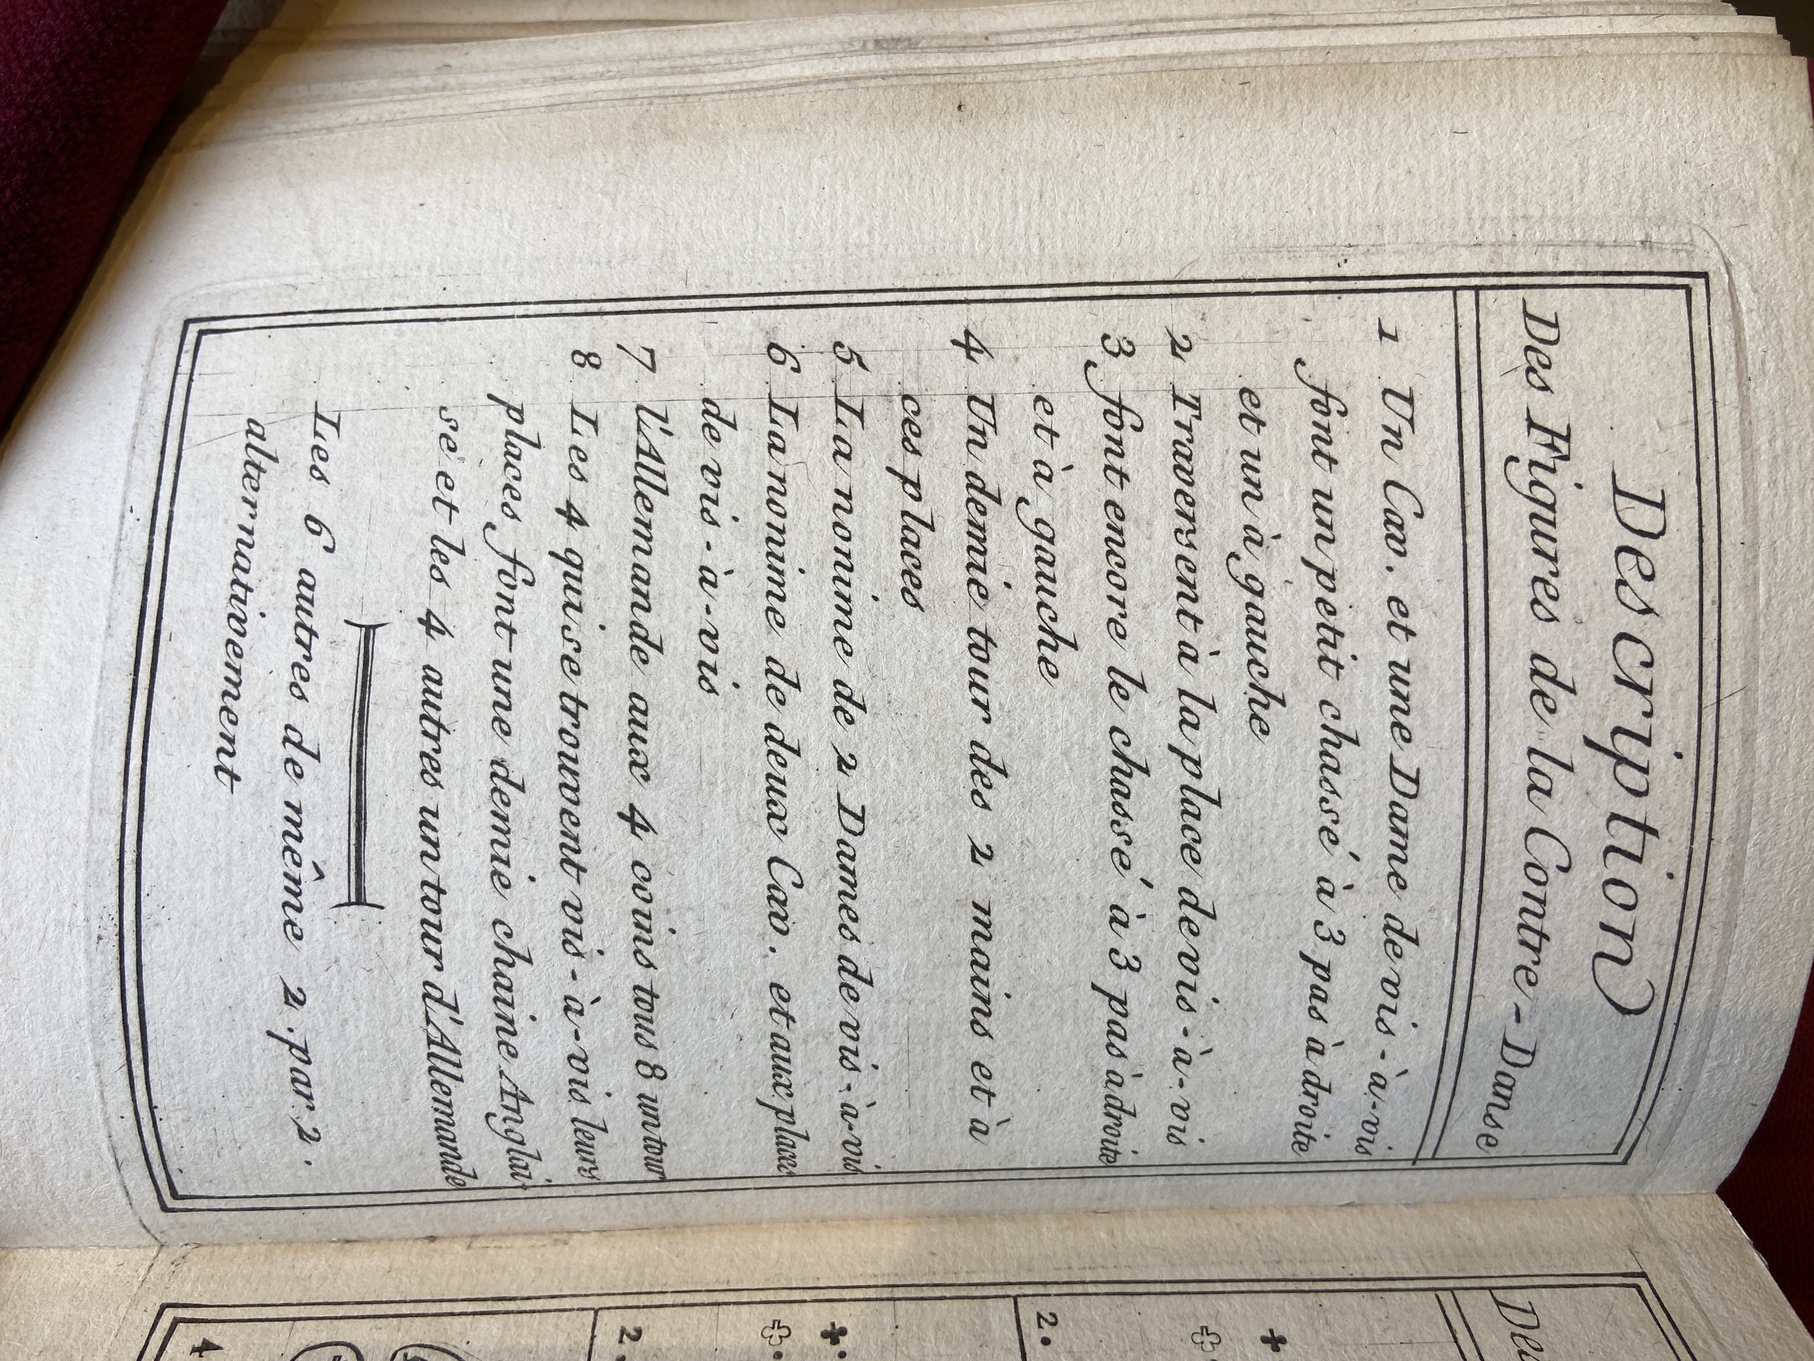 Description
Des Figures de la Contre-Danse
1 Un Cav. et une Dame de vis-à-vis
font un petit chassé à 3 pas à droite
et un à gauche
2 Traversent à la place de vis-à-vis
3 font encore le chassé à 3 pas à droite
et à gauche
4 Un demie tour des 2 mains et à
ces places
5 La nonime de 2 Dames de vis-à-vis
6 La nonime de deux Cav. et aux places
de vis-à-vis
7 l'Allemande aux 4 coins tous 8 un tour
8 Les 4 qui se trouvent vis-à-vis leurs
places font une demie chaine Anglai-
se et les 4 autres un tour d'Allemande
Les 6 autres de même 2 par 2.
alternativement
De
2.
2.
4